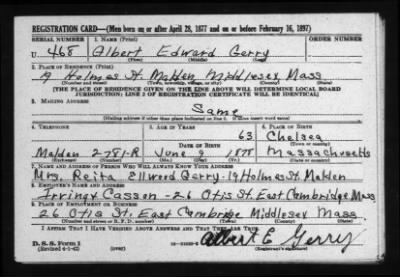 REGISTRATION CARD—(Men born on or after April 28, 1877 and on or before February 16, 1897)
SERIAL NUMBER 1. NAME (Print) ORDER NUMBER
U 468 Albert Edward Gerry
(First) (Middle) (Last)
2. PLACE OF RESIDENCE (Print)
19 Holmes St. Malden Middlesex Mass
(Number and street) (Town, township, village, or city) (County) (State)
[THE PLACE OF RESIDENCE GIVEN ON THE LINE ABOVE WILL DETERMINE LOCAL BOARD
JURISDICTION; LINE 2 OF REGISTRATION CERTIFICATE WILL BE IDENTICAL]
3. MAILING ADDRESS
Same
(Mailing address if other than place indicated on line 2. If same insert word same)
4. TELEPHONE 5. AGE IN YEARS 6. PLACE OF BIRTH
63 Chelsea
DATE OF BIRTH (Town or county)
Malden 2781-R June 9 1878 Massachusetts
(Exchange) (Number) (Mo.) (Day) (Yr.) (State or country)
7. NAME AND ADDRESS OF PERSON WHO WILL ALWAYS KNOW YOUR ADDRESS
Mrs. Reita Ellwood Gerry-19 Holmes St. Malden
8. EMPLOYER'S NAME AND ADDRESS
Irving & Casson - 26 Otis St. East Cambridge Mass.
9. PLACE OF EMPLOYMENT OR BUSINESS
26 Otis St. East Cambridge Middlesex Mass.
(Number and street or R. F. D. number) (Town) (County) (State)
I AFFIRM THAT I HAVE VERIFIED ABOVE ANSWERS AND THAT THEY ARE TRUE.
D. S. S. Form 1
(Revised 4-1-42)
Albert E. Gerry
(Registrant's signature)